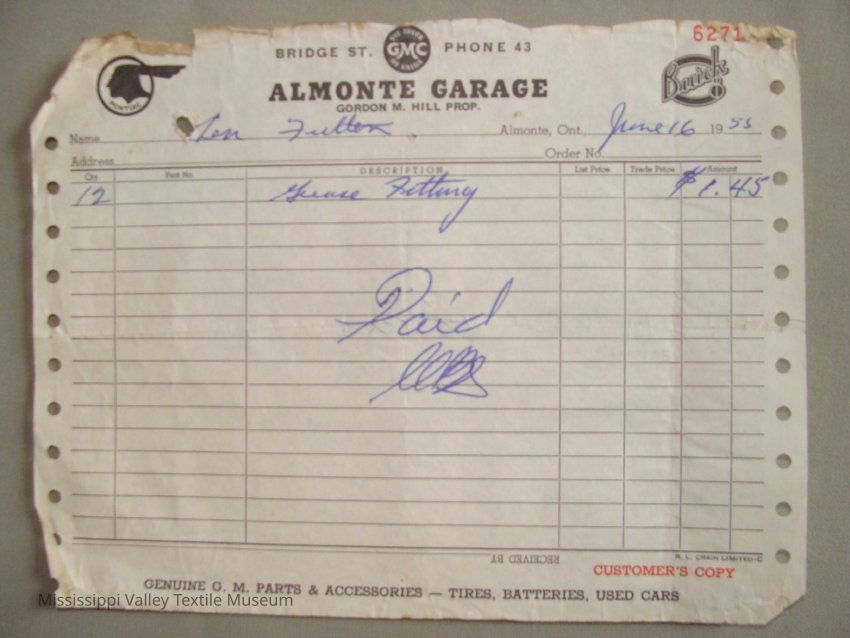 BRIDGE ST. GMC PHONE 43
6271
PONTIAC
ALMONTE GARAGE
Buick 8
GORDON M. HILL PROP.
Name Len Fulton Almonte, Ont., June 16 1953
Address Order No.
Qty. Part No. DESCRIPTION List Price Trade Price Amount
12 Grease Fittings $1.45
Paid
RECEIVED BY
R. L. CRAIN LIMITED-C
CUSTOMER'S COPY
GENUINE G. M. PARTS & ACCESSORIES — TIRES, BATTERIES, USED CARS
Mississippi Valley Textile Museum